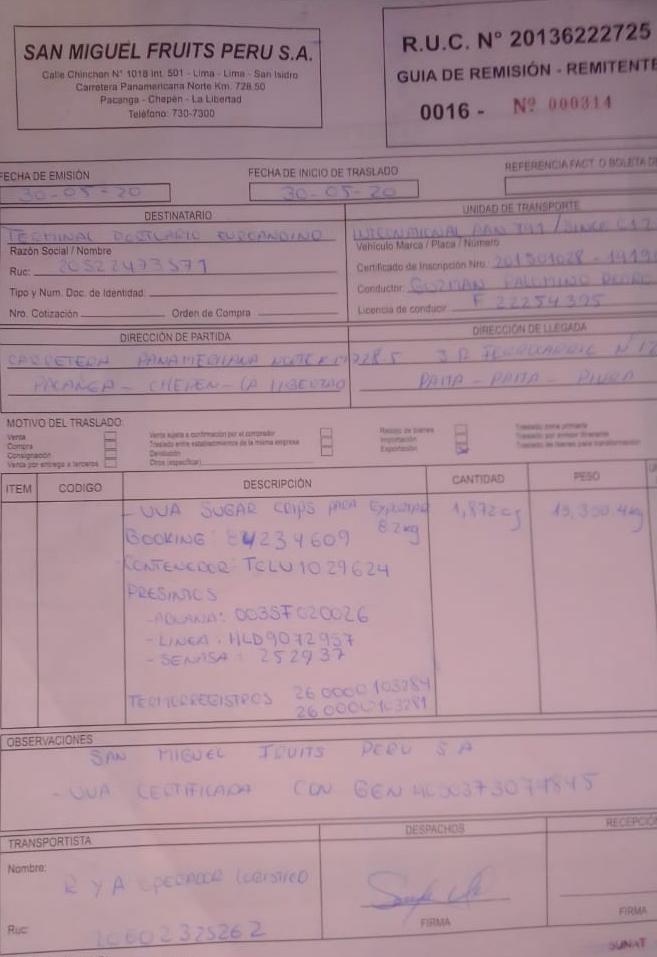 SAN MIGUEL FRUITS PERU S.A.
Calle Chinchon N° 1018 Int. 501 - Lima - Lima - San Isidro
Carretera Panamericana Norte Km. 728.50
Pacanga - Chepén - La Libertad
Teléfono: 730-7300
R.U.C. N° 20136222725
GUIA DE REMISIÓN - REMITENTE
0016 - Nº 000314
FECHA DE EMISIÓN
30-05-20
FECHA DE INICIO DE TRASLADO
30-05-20
REFERENCIA FACT. O BOLETA DE
DESTINATARIO
TERMINAL PORTUARIO EUROANDINO
Razón Social / Nombre
Ruc: 20522473571
Tipo y Num. Doc. de Identidad:
Nro. Cotización Orden de Compra
UNIDAD DE TRANSPORTE
INTERNATIONAL
Vehículo Marca / Placa / Número
Certificado de Inscripción Nro.
Conductor: GUZMAN PALOMINO PEDRO
Licencia de conducir. F 22254395
DIRECCIÓN DE PARTIDA
CARRETERA PANAMERICANA NORTE KM 728.5
PACANGA - CHEPEN - LA LIBERTAD
DIRECCIÓN DE LLEGADA
JR FERROCARRIL N°
PAITA - PAITA - PIURA
MOTIVO DEL TRASLADO:
Venta
Compra
Consignación
Venta por entrega a terceros
Venta sujeta a confirmación por el comprador
Traslado entre establecimientos de la misma empresa
Devolución
Otros (especificar)
Recojo de bienes
Importación
Exportación
Traslado zona primaria
Traslado por emisor itinerante
Traslado de bienes para transformación
ITEM CODIGO DESCRIPCIÓN CANTIDAD PESO
- UVA SUGAR CRIPS PARA 1,872 cj 15,350.4kg
8.2kg
BOOKING: 84234609
CONTENEDOR: TCLU1029624
PRESINTOS
- ADUANA: 0035F020026
- LINEA: HLD9072957
- SENASA: 252937
TERMOREGISTROS 260000103284
260000103281
OBSERVACIONES
SAN MIGUEL FRUITS PERU S A
- UVA CERTIFICADA CON GGN
TRANSPORTISTA
Nombre:
R Y A OPERADOR LOGISTICO
Ruc: 20602325262
DESPACHOS
FIRMA
RECEPCIÓ
FIRMA
SUNAT